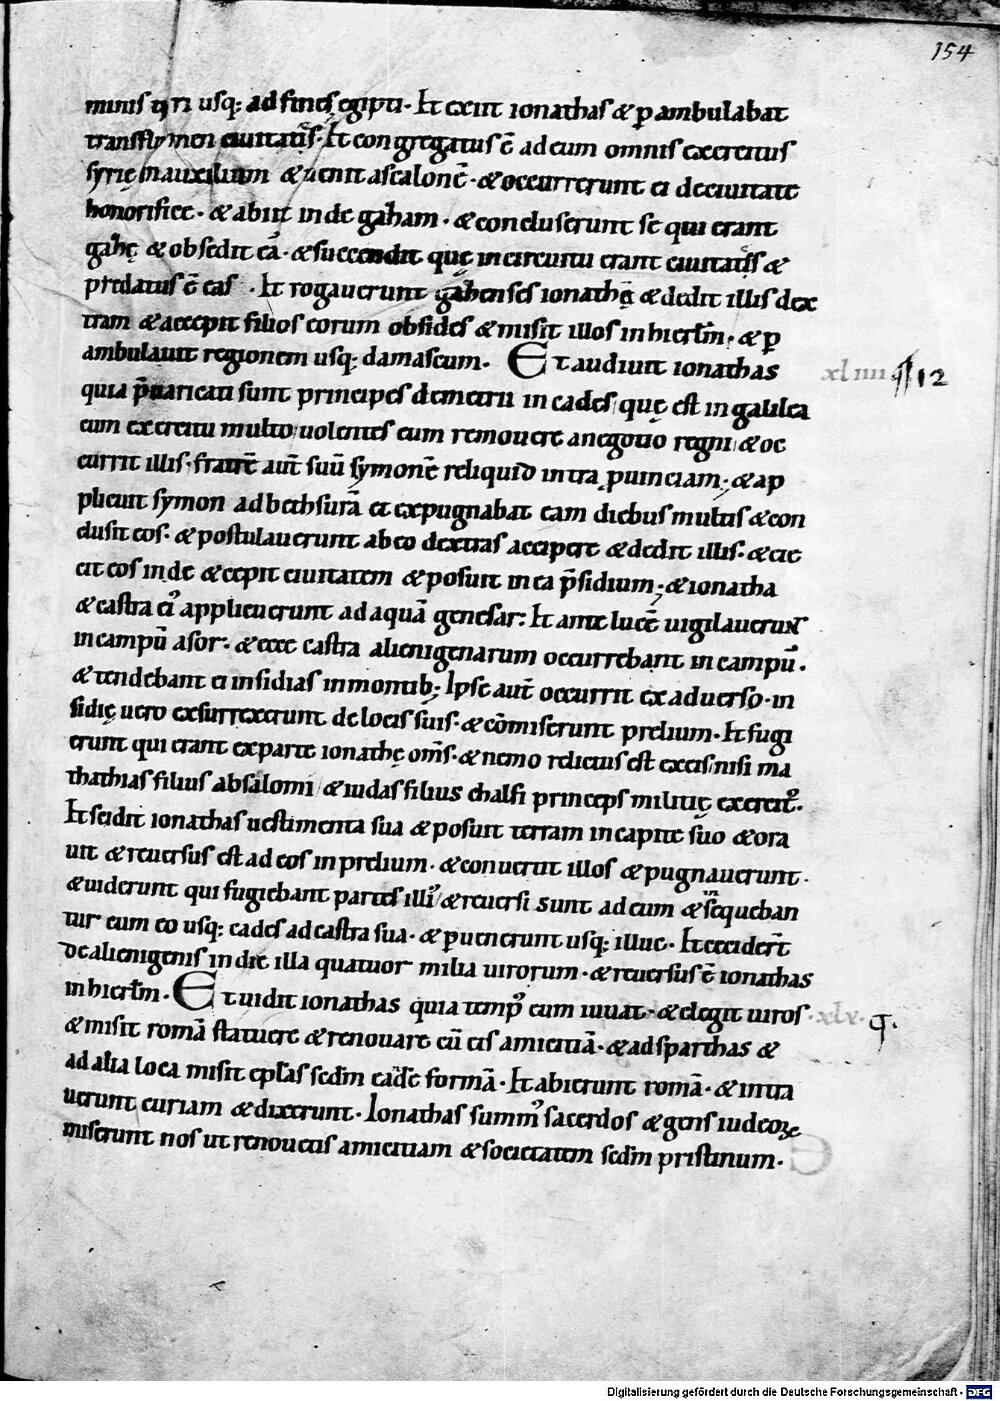 154
minis tyri usq; ad fines egipti. Et exiit ionathas & p ambulabat
transflumen ciuitatis. Et congregatus ē ad eum omnis exercitus
syrię in auxilium & uenit ascalonē. & occurrerunt ei deciuitate
honorifice. & abiit inde gazham. & concluserunt se qui erant
gazhę & obsedit eā. & succendit quę in circuitu erant ciuitatis &
predatus ē eas. Et rogauerunt gazhenses ionathę & dedit illis dex
tram & accepit filios eorum obsides & misit illos in hierlm; & p
ambulauit regionem usq; damascum. Et audiuit ionathas
xliiii 12
quia p̄uaricati sunt principes demetrii in cades quę est in galilea
cum exercitu multo uolentes eum remouere anegotio regni & oc
currit illis. fratrē aut̄ suū symonē reliquid intra puinciam; & ap
plicuit symon ad bethsurā et expugnabat eam diebus multis & con
clusit eos. & postulauerunt ab eo dextras accipere & dedit illis. & eie
cit eos inde & cepit ciuitatem & posuit in ea p̄sidium; & ionatha
& castra ei' applicuerunt ad aquā genesar. Et ante lucē uigilauerunt
in campū asor. & ecce castra alienigenarum occurrebant in campū.
& tendebant ei insidias in montib; Ipse aut̄ occurrit ex aduerso. in
sidię uero exsurrexerunt de locis suis. & cōmiserunt prelium. Et fugi
erunt qui erant exparte ionathę om̄s. & nemo relictus est exeis nisi ma
thathias filius absalomi & iudas filius chalfi princeps militię exercit'.
Et scidit ionathas uestimenta sua & posuit terram in capite suo & ora
uit & reuersus est ad eos in prelium. & conuertit illos & pugnauerunt.
& uiderunt qui fugiebant partes illi' & reuersi sunt ad eum & insequeban
tur cum eo usq; cades ad castra sua. & puenerunt usq; illuc. Et cecidert̄
de alienigenis in die illa quatuor milia uirorum. & reuersus ē ionathas
in hierlm. Et uidit ionathas quia temp' eum iuuat. & elegit uiros
xlv.
& misit romā statuere & renouare cū eis amicitiā. & ad sparthas &
ad alia loca misit ep̄las sedm eadē formā. Et abierunt romā. & intra
uerunt curiam & dixerunt. Ionathas summ' sacerdos & gens iudeoꝝ
miserunt nos ut renouetis amicitiam & societatem sedm pristinum.
Digitalisierung gefördert durch die Deutsche Forschungsgemeinschaft - DFG